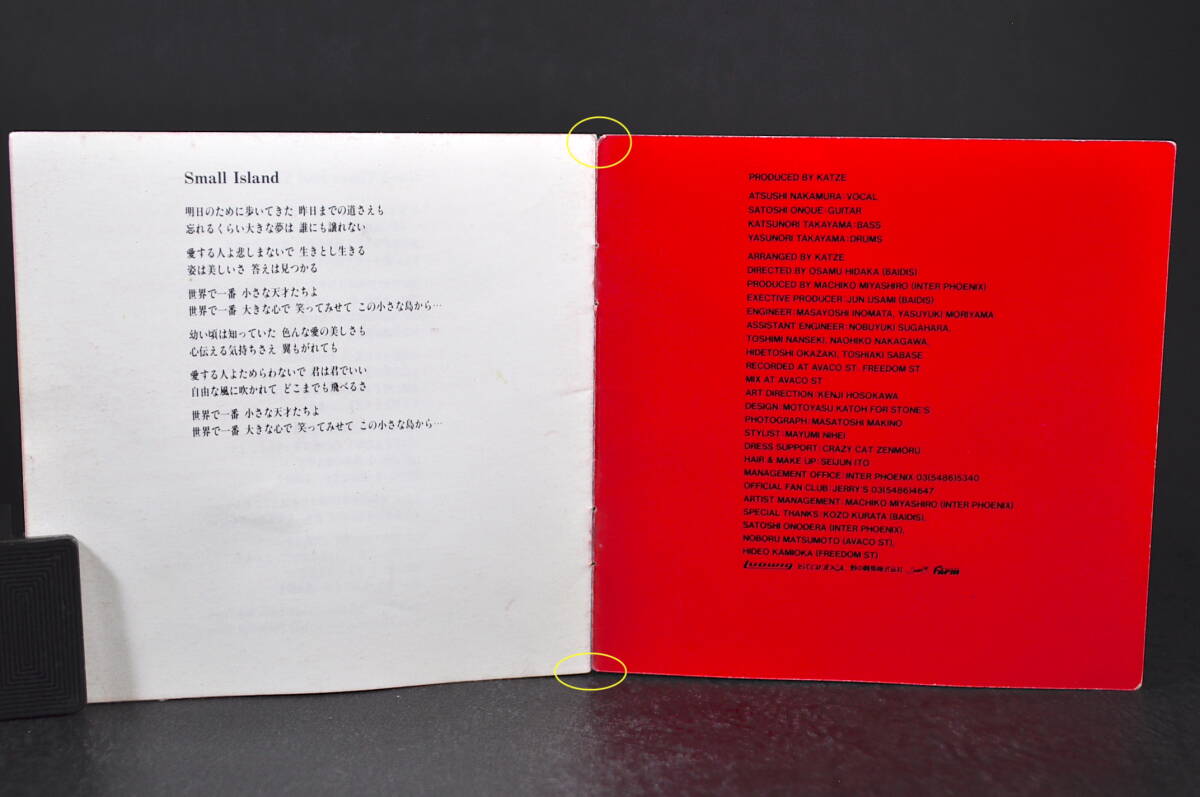 Small Island
明日のために歩いてきた 昨日までの道さえも
忘れるくらい大きな夢は 誰にも譲れない
愛する人よ悲しまないで 生きとし生きる
姿は美しいさ 答えは見つかる
世界で一番 小さな天才たちよ
世界で一番 大きな心で 笑ってみせて この小さな島から…
幼い頃は知っていた 色んな愛の美しさも
心伝える気持ちさえ 翼もがれても
愛する人よためらわないで 君は君でいい
自由な風に吹かれて どこまでも飛べるさ
世界で一番 小さな天才たちよ
世界で一番 大きな心で 笑ってみせて この小さな島から…
PRODUCED BY KATZE
ATSUSHI NAKAMURA:VOCAL
SATOSHI ONOUE:GUITAR
KATSUNORI TAKAYAMA:BASS
YASUNORI TAKAYAMA:DRUMS
ARRANGED BY KATZE
DIRECTED BY OSAMU HIDAKA (BAIDIS)
PRODUCED BY MACHIKO MIYASHIRO (INTER PHOENIX)
EXECTIVE PRODUCER:JUN USAMI (BAIDIS)
ENGINEER:MASAYOSHI INOMATA, YASUYUKI MORIYAMA
ASSISTANT ENGINEER:NOBUYUKI SUGAHARA,
TOSHIMI NANSEKI, NAOHIKO NAKAGAWA,
HIDETOSHI OKAZAKI, TOSHIAKI SABASE
RECORDED AT AVACO ST. FREEDOM ST
MIX AT AVACO ST
ART DIRECTION:KENJI HOSOKAWA
DESIGN:MOTOYASU KATOH FOR STONE'S
PHOTOGRAPH:MASATOSHI MAKINO
STYLIST:MAYUMI NIHEI
DRESS SUPPORT:CRAZY CAT ZENMORU
HAIR & MAKE UP:SEIJUN ITO
MANAGEMENT OFFICE:INTER PHOENIX 03(5486)5340
OFFICIAL FAN CLUB:JERRY'S 03(5486)4647
ARTIST MANAGEMENT:MACHIKO MIYASHIRO (INTER PHOENIX)
SPECIAL THANKS:KOZO KURATA (BAIDIS),
SATOSHI ONODERA (INTER PHOENIX),
NOBORU MATSUMOTO (AVACO ST),
HIDEO KAMIOKA (FREEDOM ST)
Ludwig